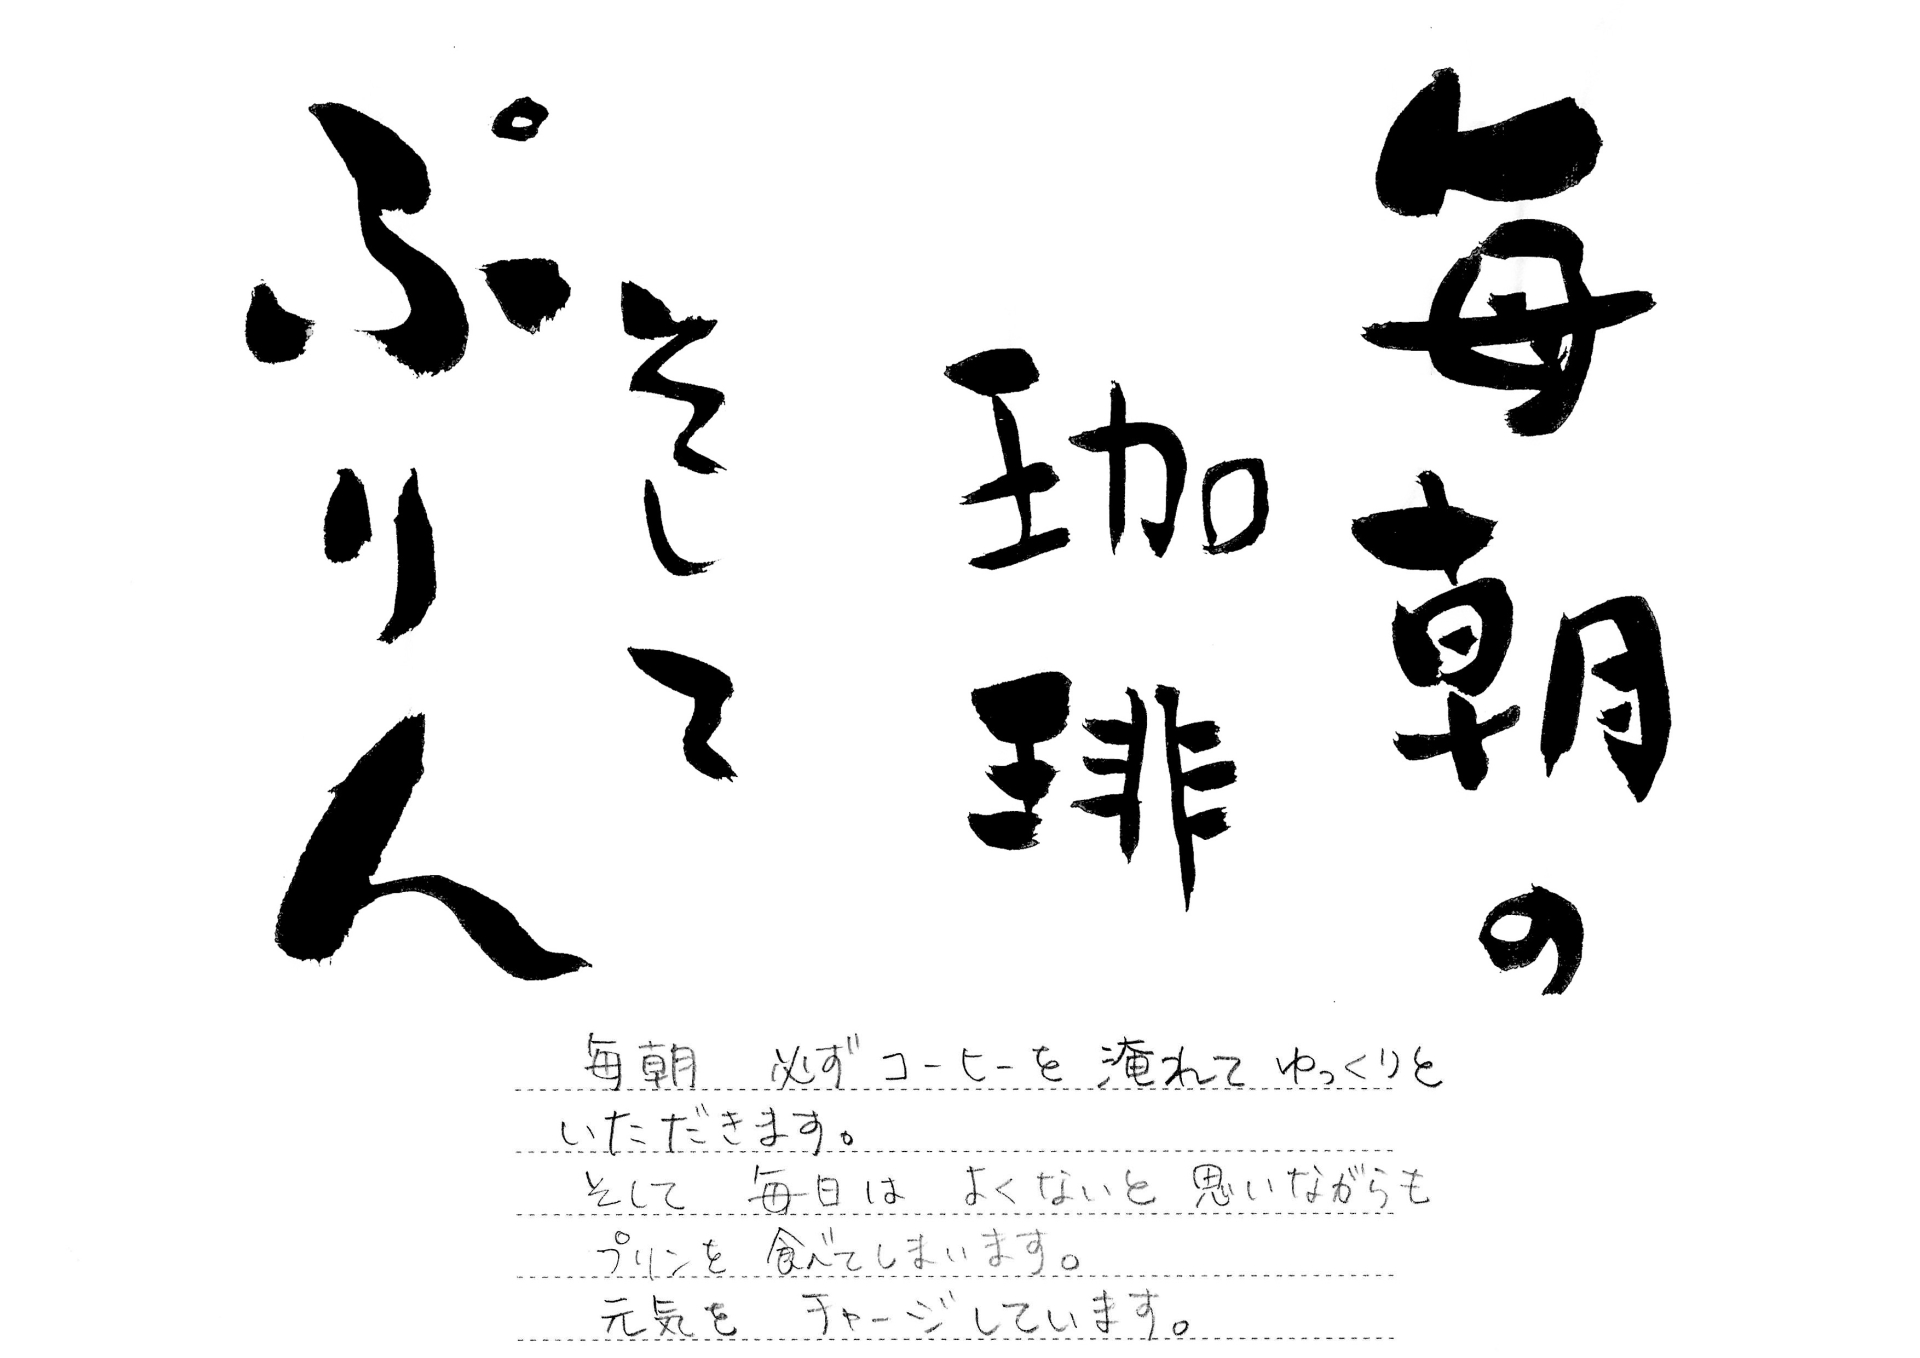 毎朝の
珈琲
そして
ぷりん
毎朝 必ずコーヒーを 淹れて ゆっくりと
いただきます。
そして 毎日は よくないと 思いながらも
プリンを 食べてしまいます。
元気を チャージしています。